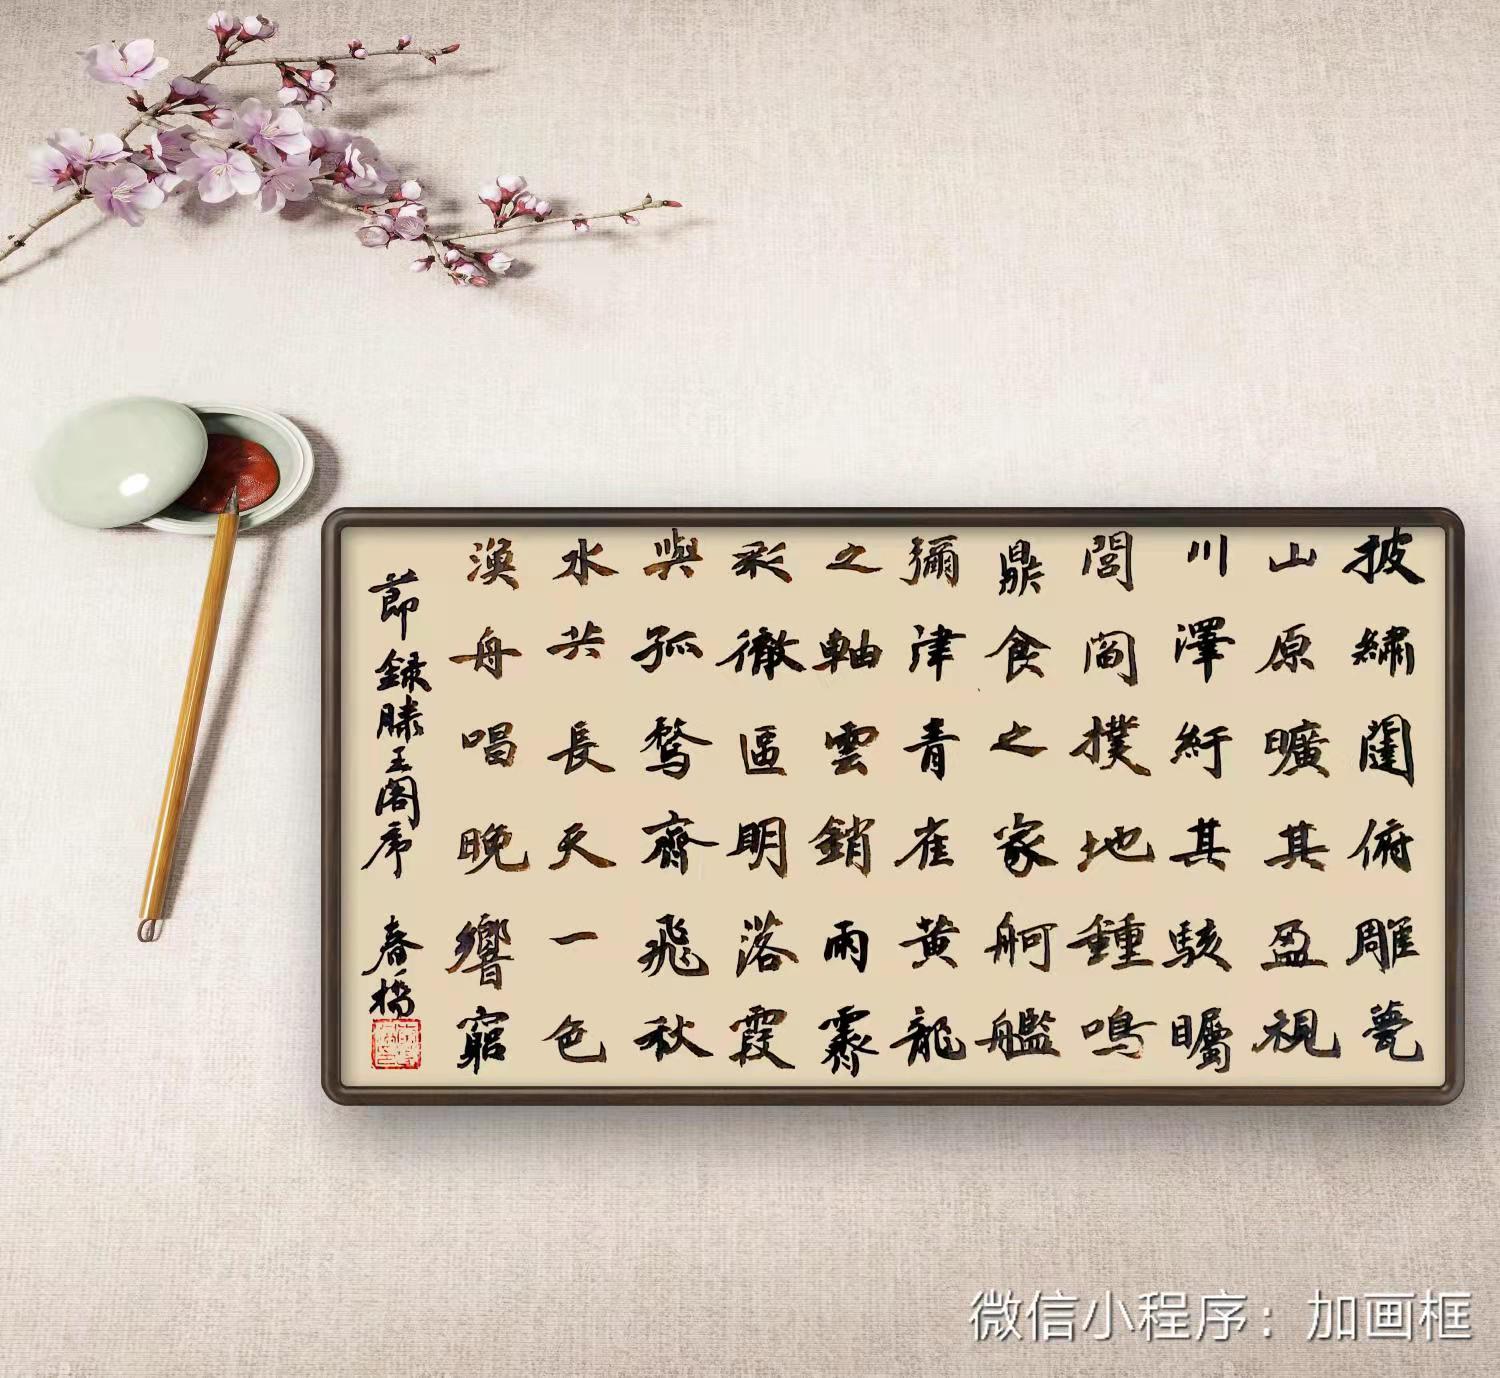 披繡闥俯雕甍
山原曠其盈視
川澤紆其駭矚
閭閻撲地鍾鳴
鼎食之家舸艦
彌津青雀黃龍
之軸雲銷雨霽
彩徹區明落霞
與孤鶩齊飛秋
水共長天一色
漁舟唱晚響窮
節録滕王閣序 春橋
微信小程序：加画框